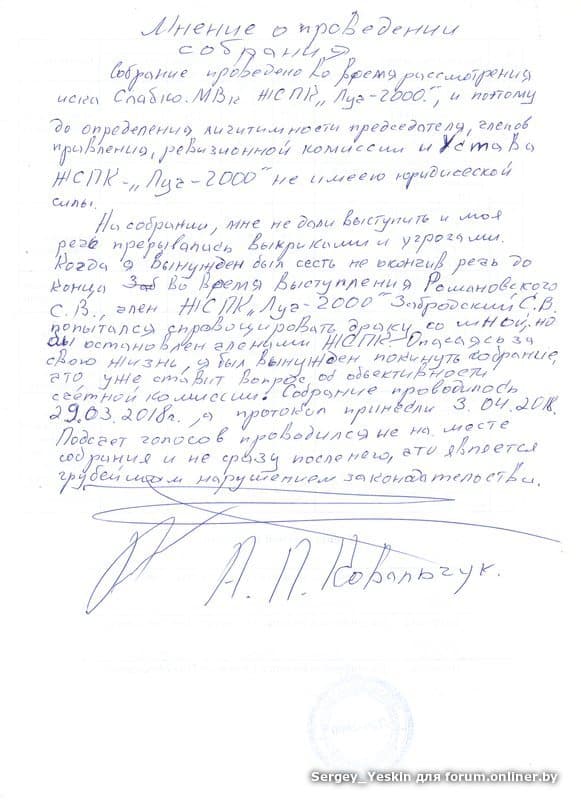 Мнение о проведении
собрания
Собрание проведено во время рассмотрения
иска Слабко. МВ к ЖСПК „Луч-2000", и поэтому
до определения личитимности председателя, членов
правления, ревизионной комиссии и Устава
ЖСПК-„Луч-2000" не имеею юридисеской
силы.
На собрании, мне не дали выступить и моя
речь прерывалась выкриками и угрозами.
Когда я вынужден был сесть не окончив речь до
конца Во время выступления Романовского
С.В., член ЖСПК „Луч-2000" Забродский С.В.
попытался спровоцировать драку со мной, но
был остановлен членами ЖСПК. Опасаясь за
свою жизнь, я был вынужден покинуть собрание,
это уже ставит вопрос об объективности
счётной комиссии. Собрание проводилось
29.03.2018г., а протокол принесли 3.04.2018.
Подсчет голосов проводился не на месте
собрания и не сразу после него, это является
грубейшим нарушением законодательства.
А. П. Ковальчук.
Sergey_Yeskin для forum.onliner.by